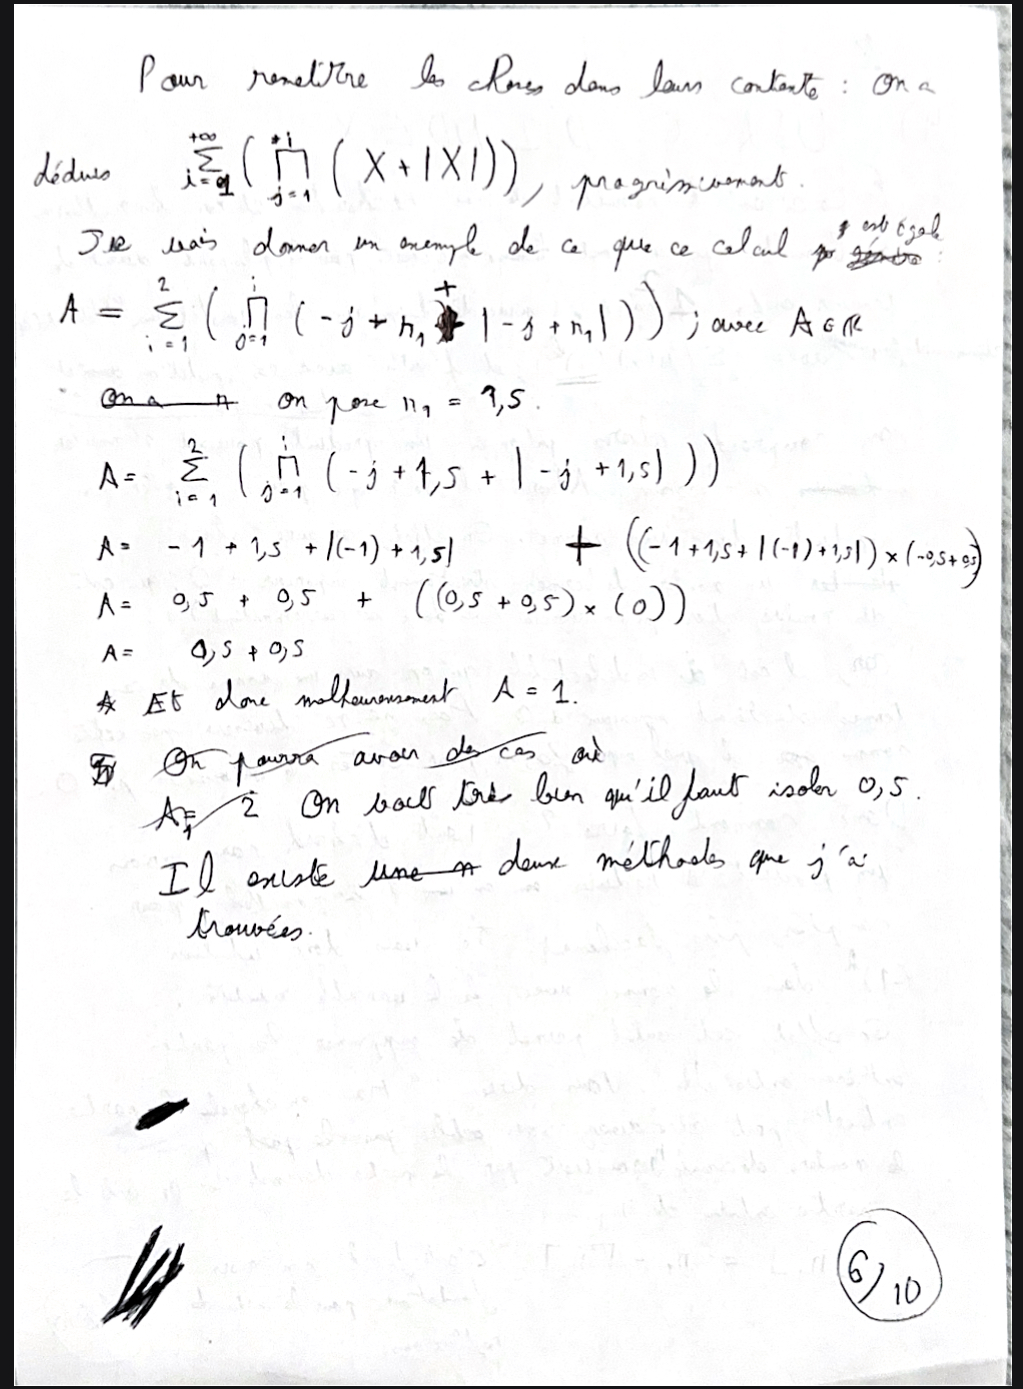 Pour remettre les choses dans leurs contexte : On a
dédues \sum_{i=1}^{+\infty} ( \prod_{j=1}^{i} ( X + |X| ) ), progressivement.
Je vais donner un exemple de ce que ce calcul est égale :
A = \sum_{i=1}^{2} ( \prod_{j=1}^{i} ( -j + n_1 + |-j + n_1| ) ) ; avec A ∈ ℝ
On a on pose n_1 = 1,5.
A = \sum_{i=1}^{2} ( \prod_{j=1}^{i} ( -j + 1,5 + |-j + 1,5| ) )
A = -1 + 1,5 + |(-1) + 1,5| + ((-1 + 1,5 + |(-1) + 1,5|) × (-0,5 + 0,5)
A = 0,5 + 0,5 + ((0,5 + 0,5) × (0))
A = 0,5 + 0,5
Et donc malheureusement A = 1.
On pourra avoir des cas où
A = 2 On voit très bien qu'il faut isoler 0,5.
Il existe une deux méthodes que j'ai
trouvées.
6/10